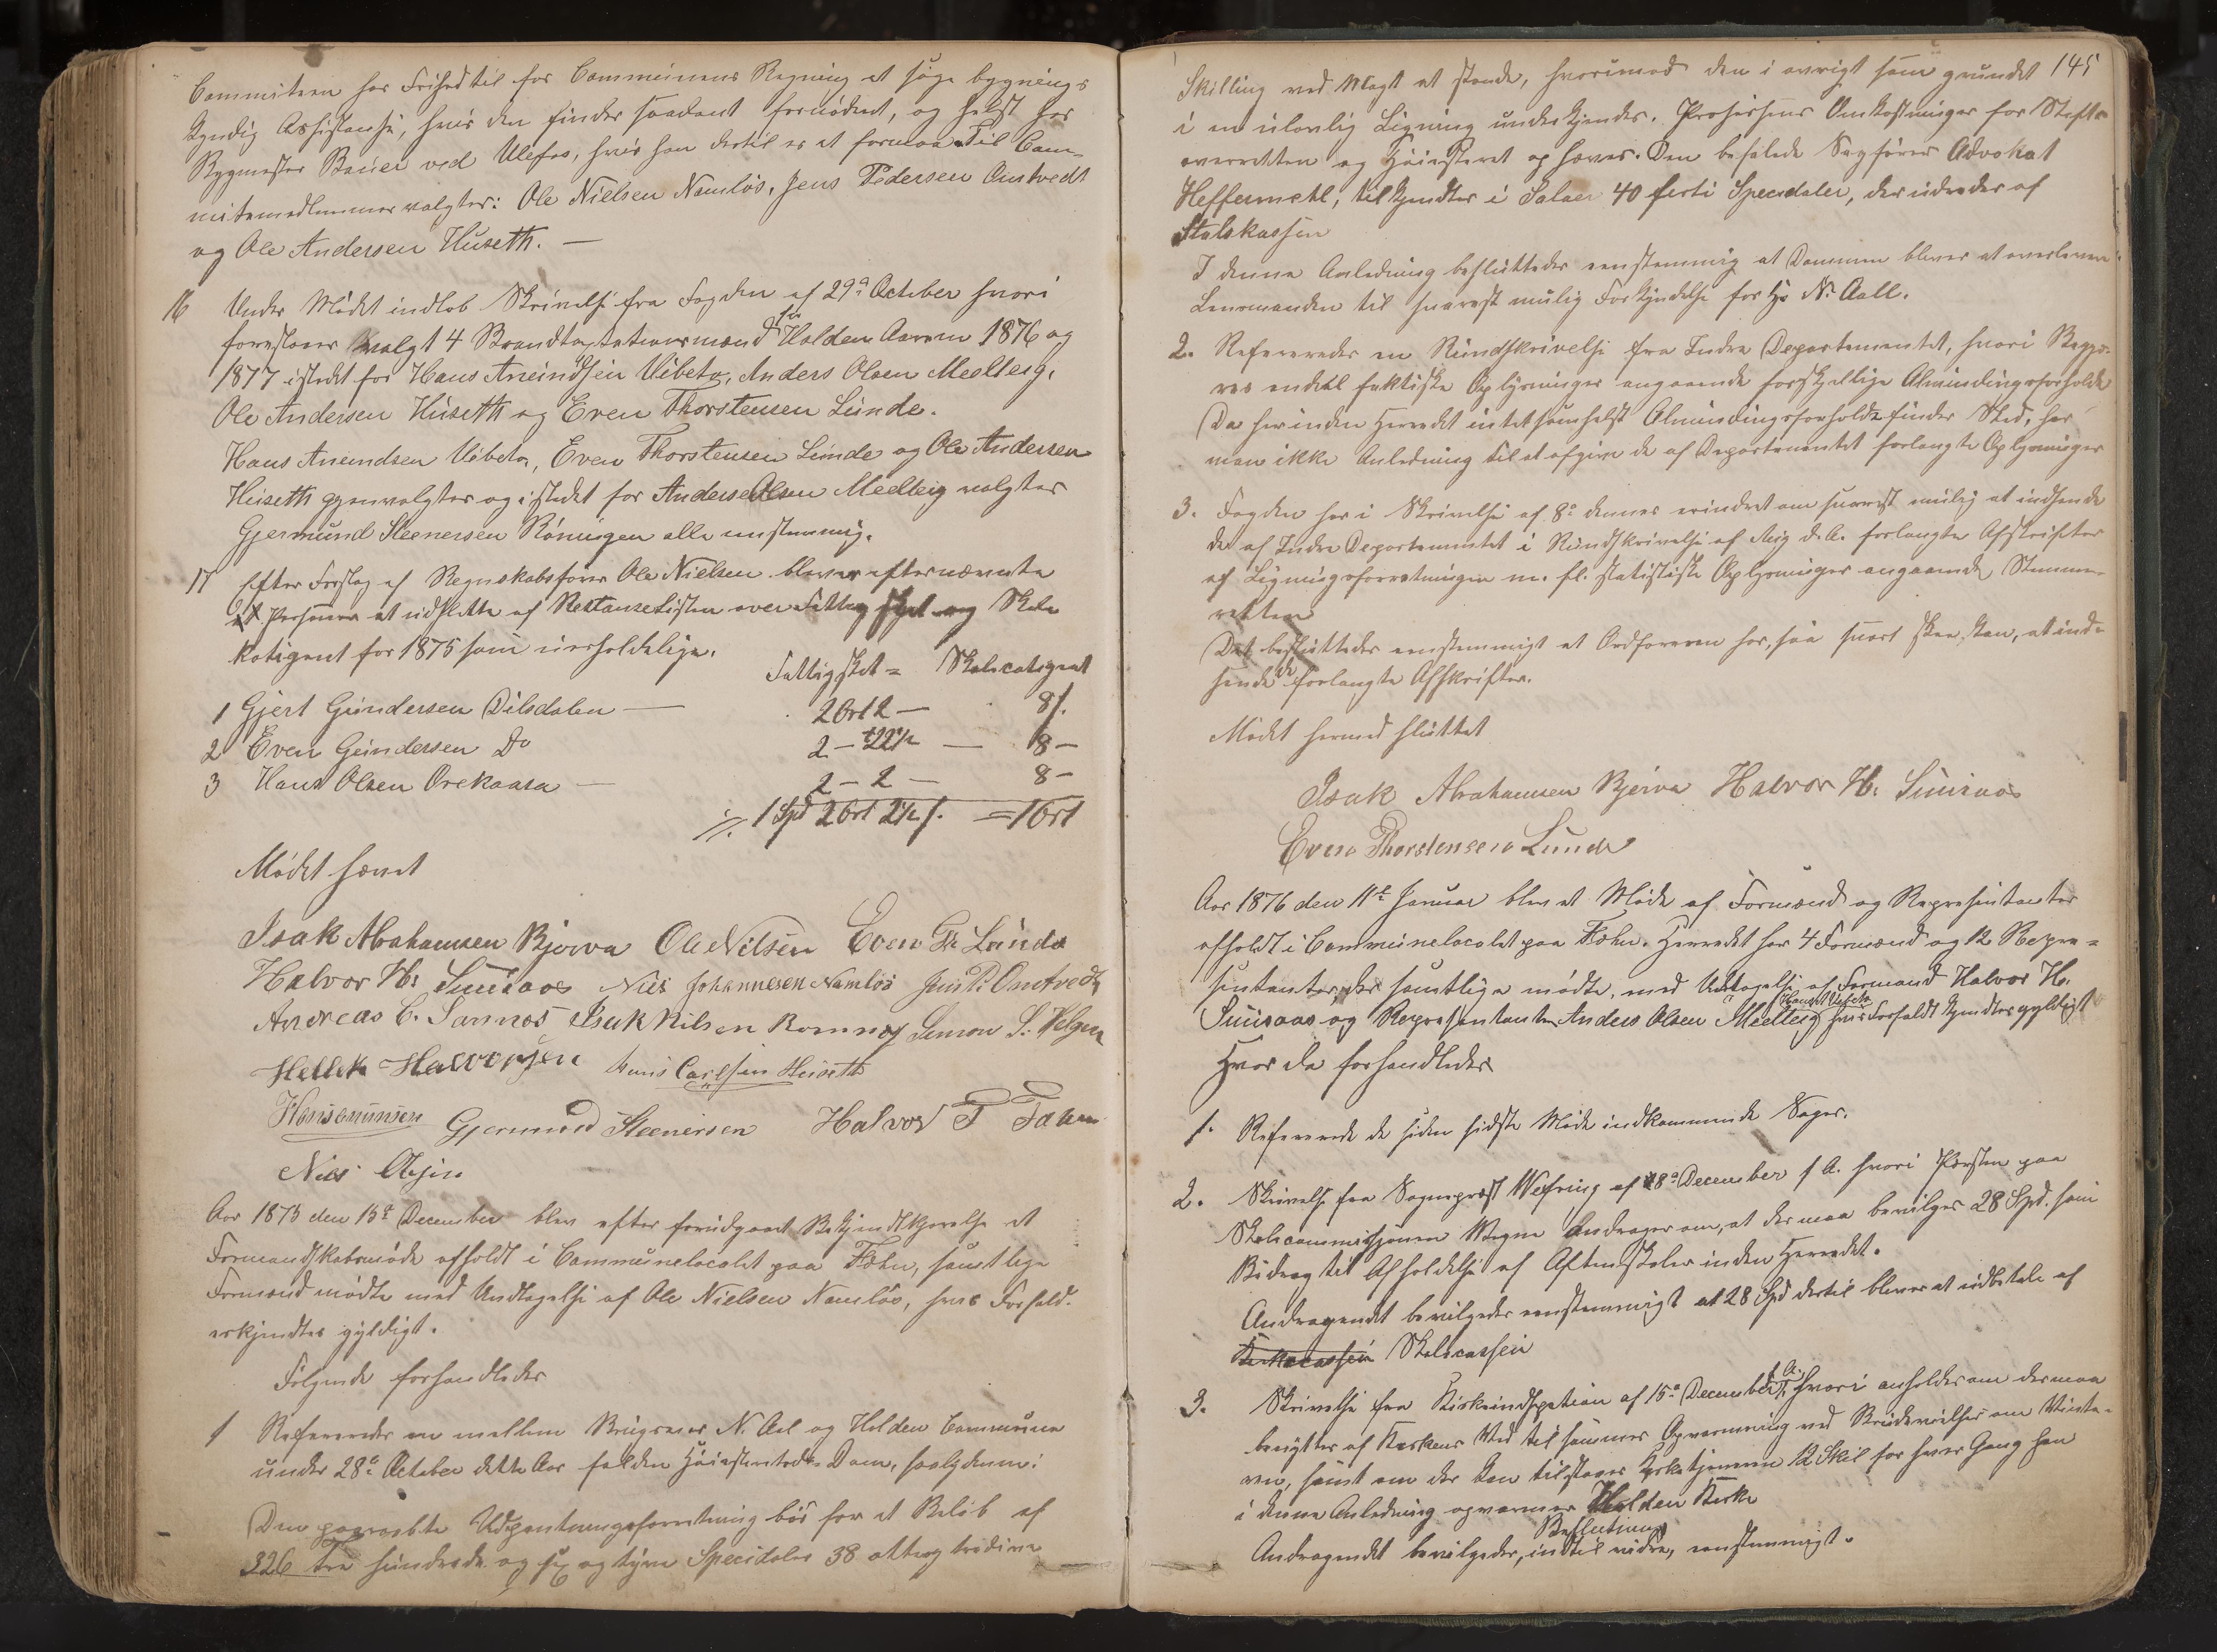 Committeen har Frihed til for Communens Regning at søge bygnings
kyndig Assistanse, hvis den finder saadant fornödent, og helst hos
Bygmester Bauer ved Ulefos, hvis han dertil er at formaa. Til Com-
mitemedlemmer valgtes: Ole Nielsen Namlös, Jens Pedersen Omtvedt
og Ole Andersen Huseth. —
16 Under Mödet indlöb Skrivelse fra Fogden af 29de October hvori
foreslaaes valgt 4 Brandtaxtationsmænd for Holden Aarene 1876 og
1877 istedet for Hans Anundsen Vibeto, Anders Olsen Meelteig,
Ole Andersen Huseth og Even Thorstensen Lunde.
Hans Anundsen Vibeto, Even Thorstensen Lunde og Ole Andersen
Huseth gjenvalgtes og istedet for Anders Olsen Meelteig valgtes
Gjermund Steenersen Röningen alle enstemmig.
17 Efter Forslag af Regnskabsfører Ole Nielsen blev efternævnte
Personer at udslette af Restanselisten over Fattigskat og Skole
kotigent for 1875 som uerholdelige.
Fattigskat = Skolecotigent
1 Gjert Gundersen Dilsdalen — 2 Ort 2 — 8 s.
2 Even Gundersen Do 2 — 22½ — 8 —
3 Hans Olsen Orekaasa — 2 — 2 — 8 —
1 Spd 2 Ort 2½ s. = 1 Ort
Mödet hævet
Isak Abrahamsen Bjerva Ole Nilsen Even Th. Lunde
Halvor H. Suusaas Nils Johannesen Namlös Jens P. Omtvedt
Andreas C. Sannes Isak Nilsen Romnæs Simon S. Helgen
Hellek Halvorsen Hans Carlsen Huseth
Hans Anunsen Gjermund Steenersen Halvor T Fæhn
Nils Olsen
Aar 1875 den 15de December blev efter forudgaaet Bekjendtgjørelse et
Formandskabsmöde afholdt i Communelocalet paa Fæhn, samtlige
Formænd mödte med Undtagelse af Ole Nielsen Namlös, hvis Forfald
erkjendtes gyldigt.
Fölgende forhandledes
1 Refereredes en mellem Brugseier N. Aal og Holden Commune
under 28de October dette Aar falden Höiesteretsdom, saalydenu:
Den paaankte Udpantningsforretning bör for et Belöb af
326 tre hundrede og sex og tyve Speciedaler 38 otteogtredive
145
Skilling ved Magt at stande, hvorimod den i övrigt som grundet
i en ulovlig Ligning underkjendes. Processens Omkostninger for Stifts-
overretten og Höiesteret ophæves. Den befalede Sagförer Advokat
Heffermehl, tilkjendtes i Salær 40 forti Speciedaler, der udredes af
Statskassen
I denne Anledning besluttedes eenstemmig at Dommen bliver at overlevere
Lensmanden til snarest mulig Forkyndelse for Hr N. Aall.
2. Refereredes en Rundskrivelse fra Indre Departementet, hvori Begjæ-
res endeel faktiske Oplysninger angaaende forskjellige Almindingsforholde
Da her inden Herredet intetsomhelst Almindingsforholde finder Sted, har
man ikke Anledning til at afgive de af Departementet forlangte Oplysninger
3. Fogden har i Skrivelse af 8de dennes erindret om snarest mulig at indsende
de af Indre Departementet i Rundskrivelse af Aug d. A. forlangte Afskrifter
af Ligningsforretningen m. fl. statistiske Oplysninger angaaende Stemme-
retten
Det besluttedes eenstemmigt at Ordföreren har, saa snart skee kan, at ind-
sende de forlangte Afskrifter.
Mödet hermed sluttet
Isak Abrahamsen Bjerva Halvor H. Suusaas
Even Thorstensen Lunde
Aar 1876 den 11te Januar blev et Möde af Formænd og Repræsentanter
afholdt i Communelocalet paa Fæhn. Herredet har 4 Formænd og 12 Repræ-
sentanter, der samtlige mödte, med Undtagelse af Formand Halvor H.
Suusaas og Repræsentanten Anders Olsen Meelteig Hans A. Vibeto hvis Forfald kjendtes gyldigt
Hvor da forhandledes
1. Refererede de siden sidste Möde indkommende Sager.
2. Skrivelse fra Sogneprest Wefring af 28de December f. A. hvori Præsten paa
Skolecommissjonens Vegne andrager om, at der maa bevilges 28 Spd. som
Bidrag til Afholdelse af Aftenskoler inden Herredet.
Andragendet bevilgedes eenstemmigt at 28 Spd dertil bliver at udbetale af
Kirkecassen Skolecassen
3. Skrivelse fra Kirkeindspektion af 15de December f. A. hvori anholdes om der maa
benyttes af Kirkens Ved til sammes Opvarmning ved Brudevielser om Vinte-
ren, samt om der kan tilstaaes Kirketjeneren 12 Skil for hver Gang han
i denne Anledning opvarmer Holden Kirke
Beslutning
Andragendet bevilgedes, indtil videre, eenstemmigt.